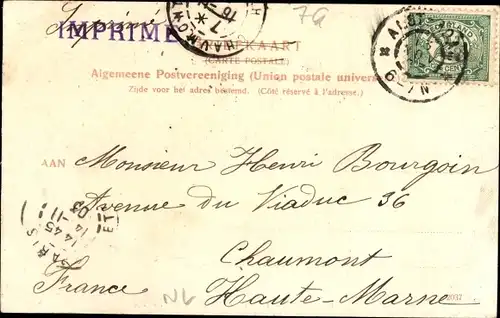 Imprimé
IMPRIMÉ
7a
(CARTE POSTALE)
Algemeene Postvereeniging (Union postale universelle)
Zijde voor het adres bestemd. (Côté réservé à l'adresse.)
AAN
Monsieur Henri Bourgoin
Avenue du Viaduc 36
Chaumont
France Haute-Marne
NL